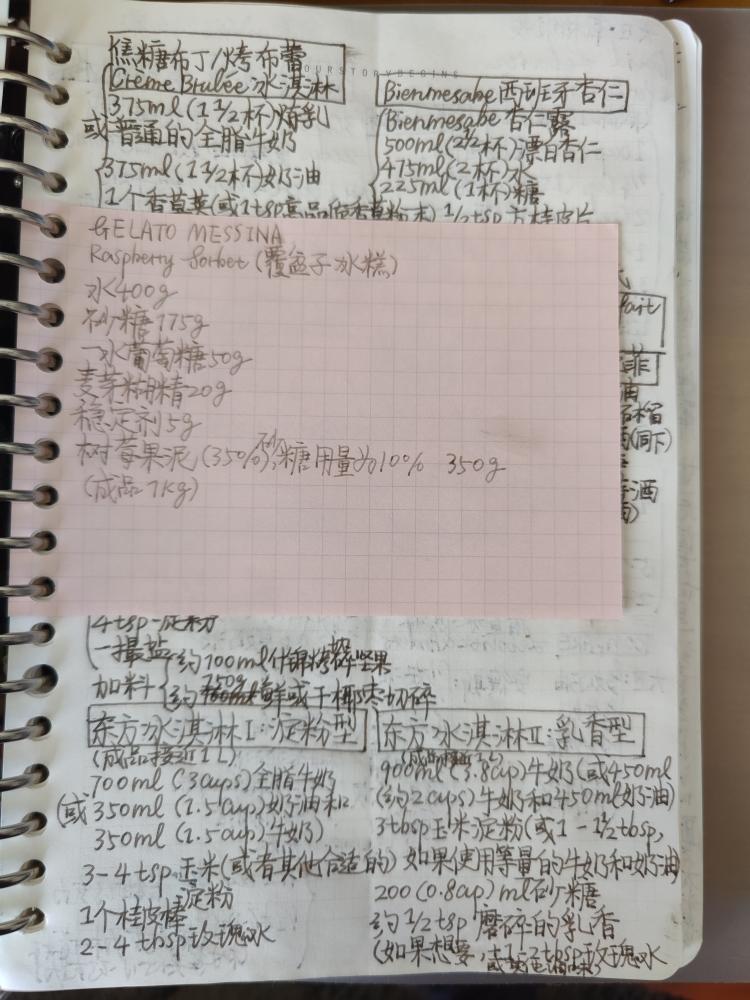 焦糖布丁/烤布蕾
OURSTORYBEGINS
Creme Brulée冰淇淋
375ml(1 1/2杯)炼乳
或普通的全脂牛奶
375ml(1 1/2杯)奶油
1个香草荚(或1tsp
香草粉末)
Bienmesabe西班牙杏仁
Bienmesabe杏仁露
500ml(2 1/2杯)漂白杏仁
475ml(2杯)水
225ml(1杯)糖
1/2tsp
桂皮片
GELATO MESSINA
Raspberry Sorbet(覆盆子冰糕)
水400g
砂糖175g
一水葡萄糖50g
麦芽糊精20g
稳定剂5g
树莓果泥(35%),砂糖用量为10% 350g
(成品1Kg)
fait
菲
油
石榴
(同下)
酒
4tsp淀粉
一撮盐
加料
约100ml什锦烤碎坚果
约
250g
鲜或干椰枣切碎
东方冰淇淋I:淀粉型
(成品接近1L)
700ml(3cups)全脂牛奶
(或350ml(1.5cup)奶油和
350ml(1.5cup)牛奶)
3-4tsp玉米(或者其他合适的)
淀粉
1个桂皮棒
2-4tbsp玫瑰水
东方冰淇淋II:乳香型
(成品接近1L)
900ml(3.8cup)牛奶(或450ml
(约2cups)牛奶和450ml奶油)
3tbsp玉米淀粉(或1-1 1/2tbsp,
如果使用等量的牛奶和奶油)
200(0.8cup)ml砂糖
约1/2tsp磨碎的乳香
(如果想要,1-2tbsp玫瑰水